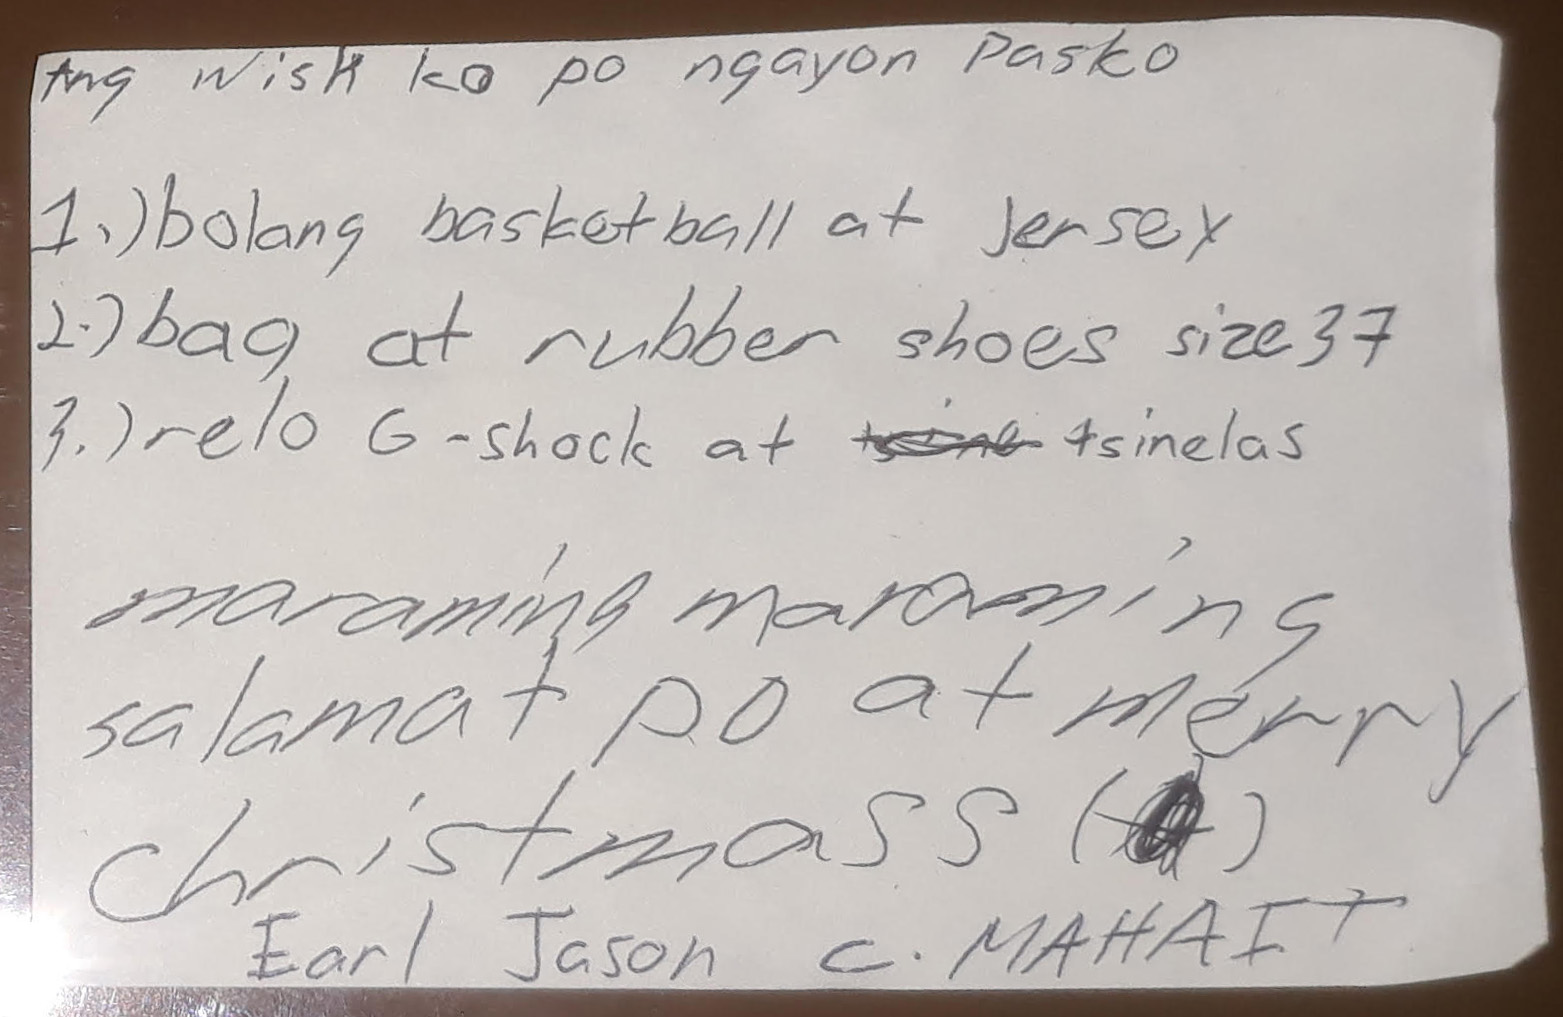 Ang wish ko po ngayon Pasko
1.) bolang basketball at Jersey
2.) bag at rubber shoes size 37
3.) relo G-shock at tsinelas
maraming maraming
salamat po at merry
christmass ( )
Earl Jason C. MAHAIT